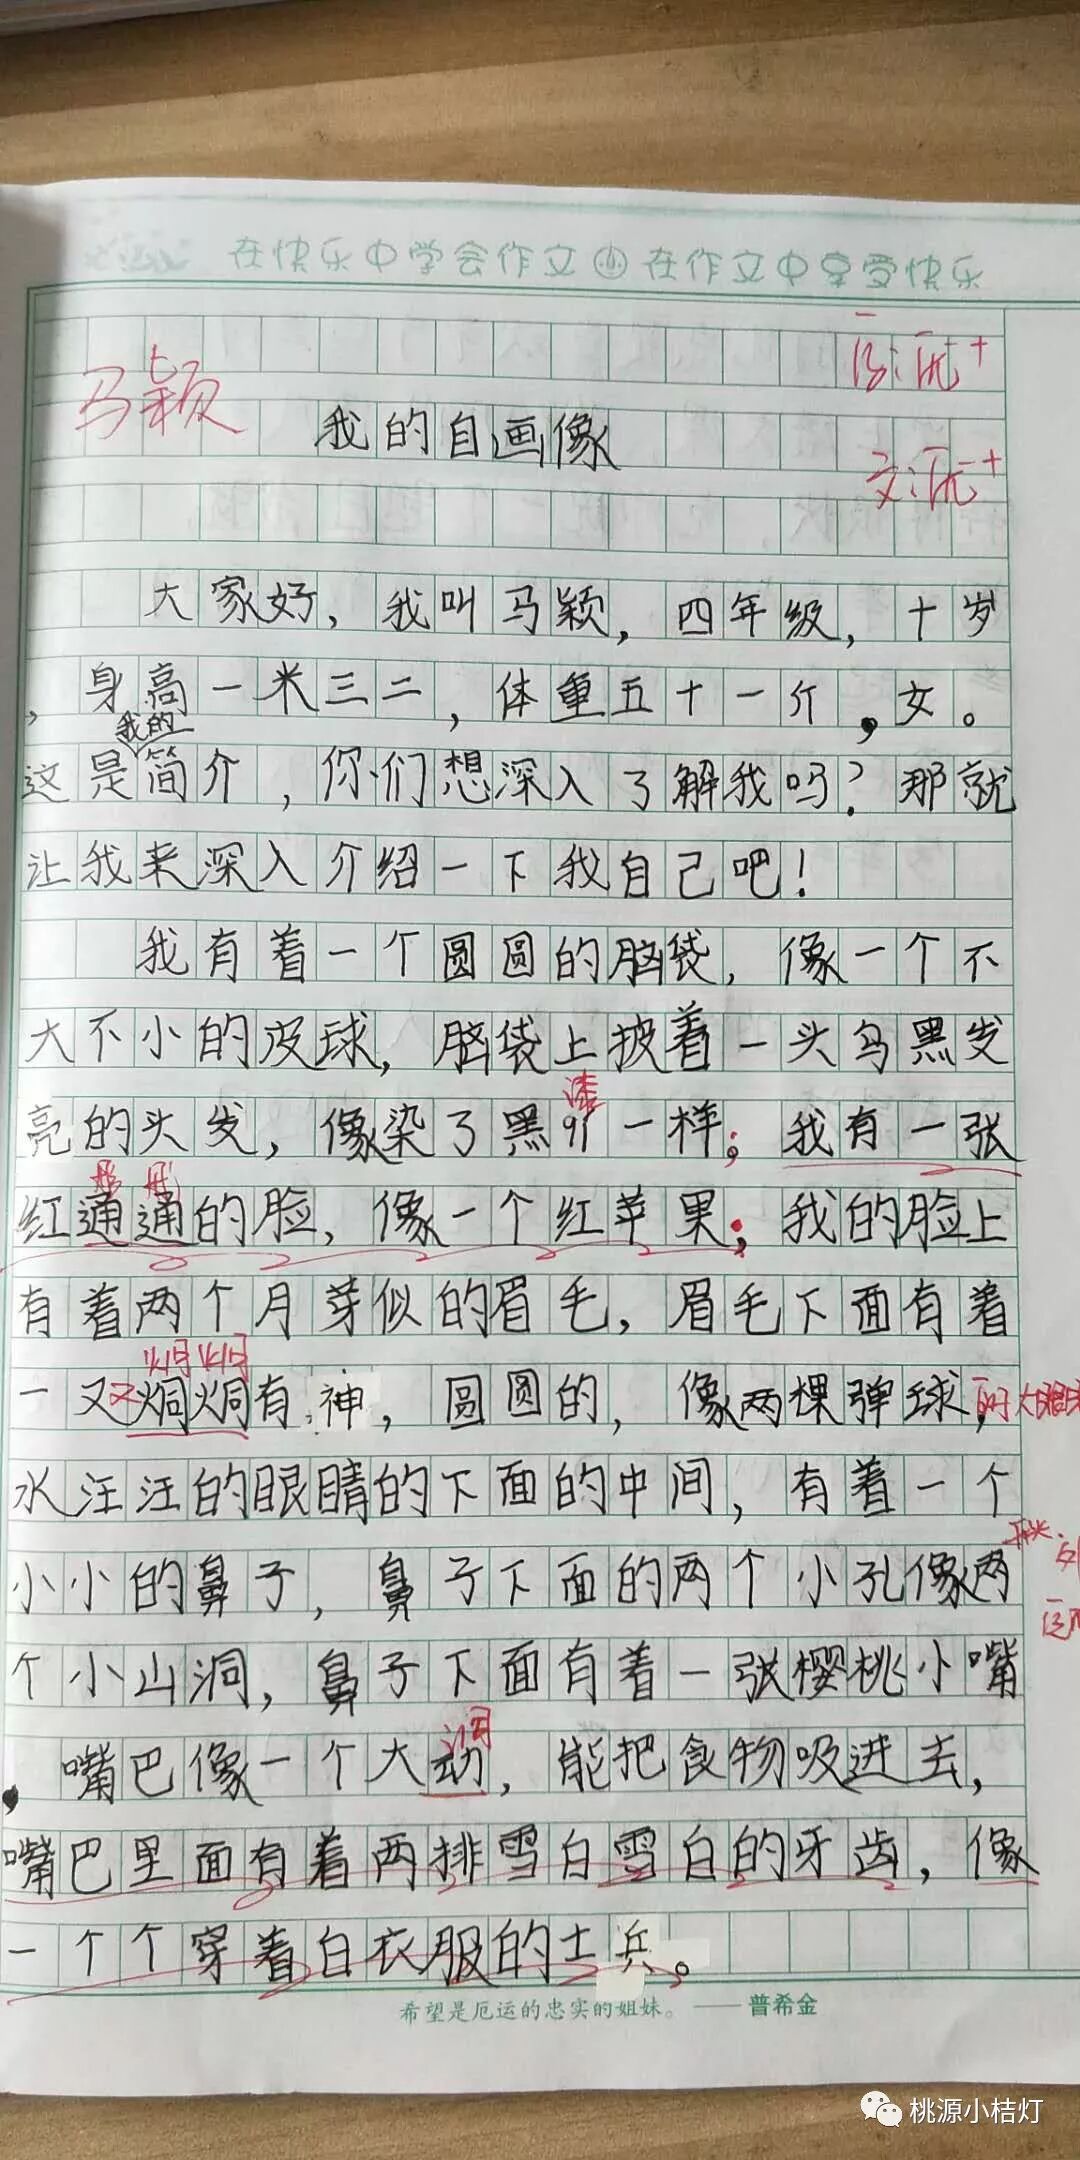 在快乐中学会作文 小 在作文中享受快乐
马颖
我的自画像
大家好，我叫马颖，四年级，十岁
，身高一米三二，体重五十一斤，女。
我的
这是简介，你们想深入了解我吗？那就
让我来深入介绍一下我自己吧！
我有着一个圆圆的脑袋，像一个不
大不小的皮球，脑袋上披着一头乌黑发
漆
亮的头发，像染了黑 一样；我有一张
红通通的脸，像一个红苹果；我的脸上
有着两个月芽似的眉毛，眉毛下面有着
炯炯
一双炯炯有神，圆圆的，像两棵弹球，的大眼睛
水汪汪的眼睛的下面的中间，有着一个
小小的鼻子，鼻子下面的两个小孔像两
个小山洞，鼻子下面有着一张樱桃小嘴
洞
，嘴巴像一个大动，能把食物吸进去，
嘴巴里面有着两排雪白雪白的牙齿，像
一个个穿着白衣服的士兵。
希望是厄运的忠实的姐妹。——普希金
桃源小桔灯